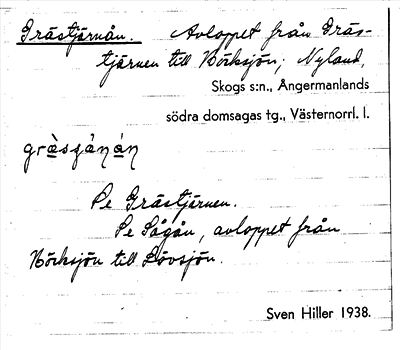 Grästjärnån. Avloppet från Gräs-
tjärnen till Nöcksjön; Nyland,
Skogs s:n., Ångermanlands
södra domsagas tg., Västernorrl. l.
Se Grästjärnen.
Se Sågån, avloppet från
Nöcksjön till Lövsjön.
Sven Hiller 1938.